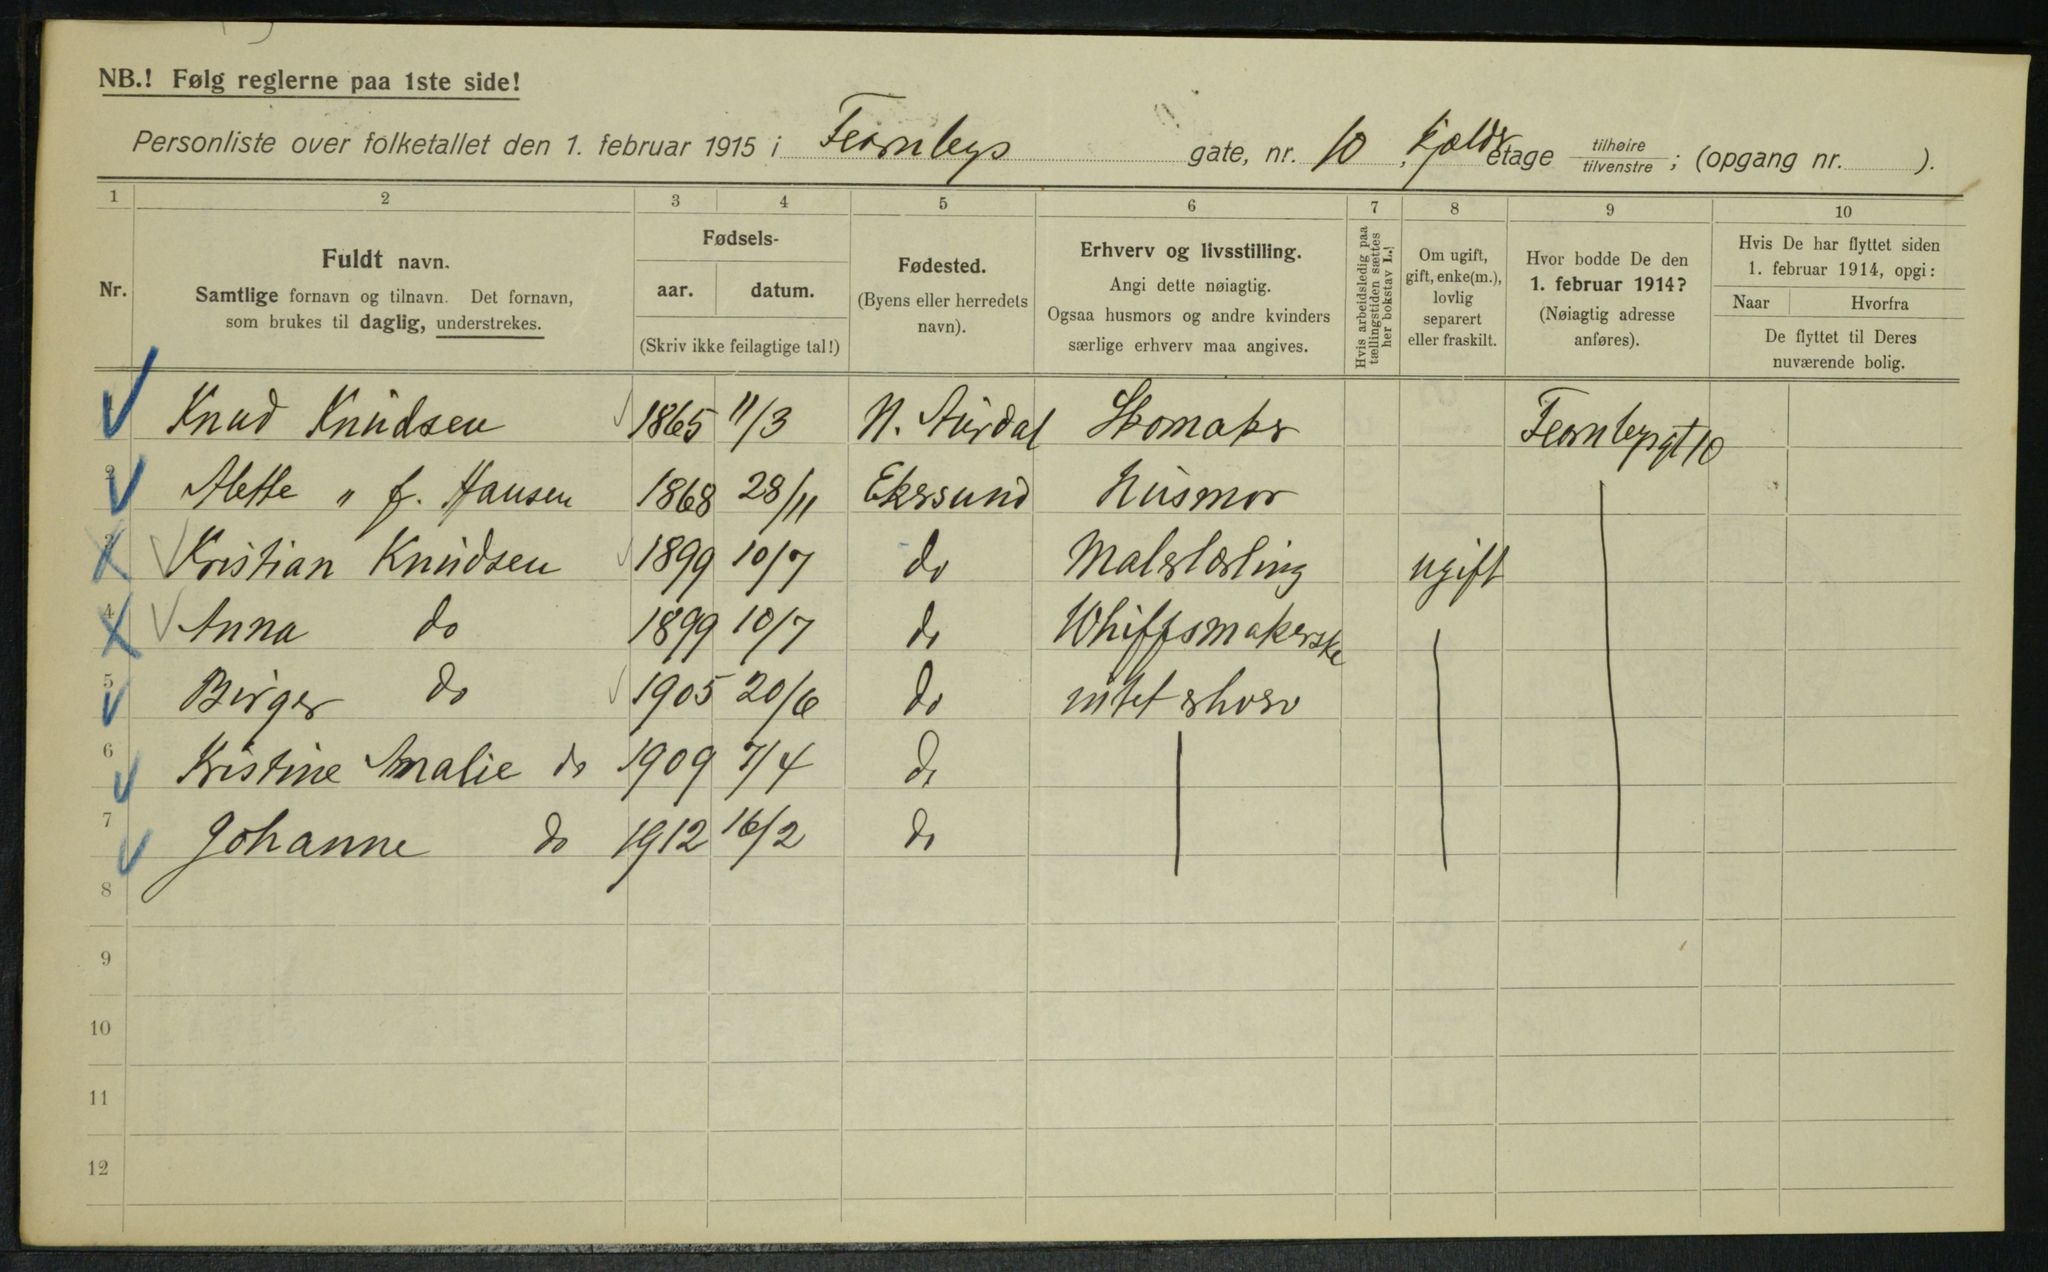 NB.! Følg reglerne paa 1ste side!
Personliste over folketallet den 1. februar 1915 i Fearnleys gate, nr. 10, kjelder etage tilhøire tilvenstre ; (opgang nr. ).
1 2 3 4 5 6 7 8 9 10
Nr.
Fuldt navn.
Samtlige fornavn og tilnavn. Det fornavn,
som brukes til daglig, understrekes.
Fødsels-
aar. datum.
(Skriv ikke feilagtige tal!)
Fødested.
(Byens eller herredets
navn).
Erhverv og livsstilling.
Angi dette nøiagtig.
Ogsaa husmors og andre kvinders
særlige erhverv maa angives.
Hvis arbeidsledig paa
tællingstiden sættes
her bokstav L.!
Om ugift,
gift, enke(m.),
lovlig
separert
eller fraskilt.
Hvor bodde De den
1. februar 1914?
(Nøiagtig adresse
anføres).
Hvis De har flyttet siden
1. februar 1914, opgi:
Naar Hvorfra
De flyttet til Deres
nuværende bolig.
1 Knud Knudsen 1865 11/3 N. Aurdal Skomaker Fearnleysgt 10
2 Alette " f. Hansen 1868 28/11 Ekersund Husmor
3 Kristian Knudsen 1899 10/7 do Malerlærling ugift
4 Anna do 1899 10/7 do Whiffsmakerske
5 Birger do 1905 20/6 do intet erhverv
6 Kristine Amalie do 1909 7/4 do
7 Johanne do 1912 16/2 do
8
9
10
11
12